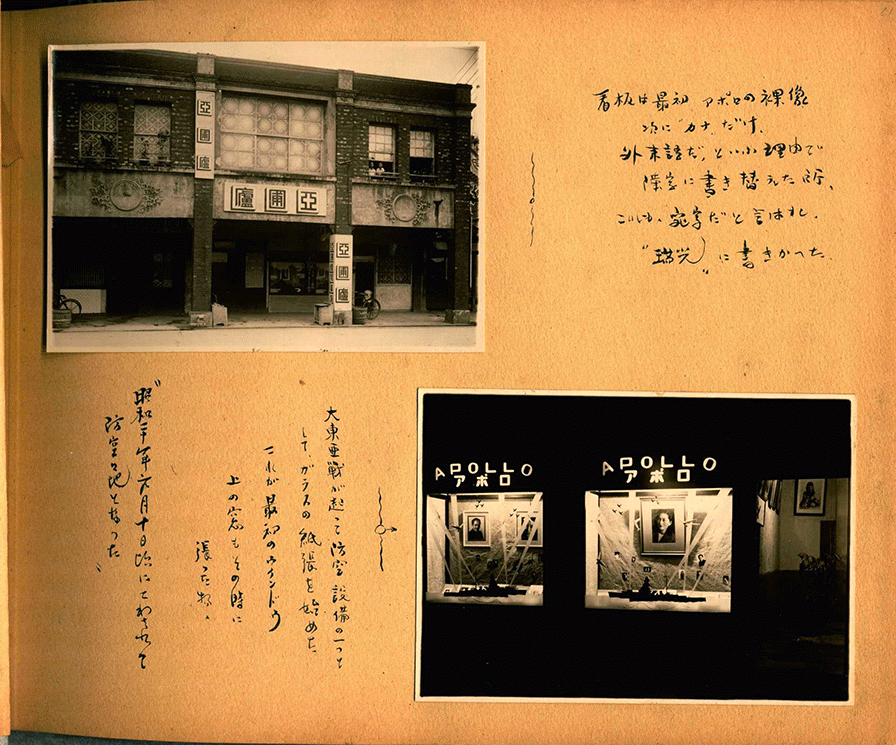 亞圃廬
亞圃廬
亞圃廬
看板は最初 アポロの裸像
次に“カナ”だけ、
外来語だ、といふ理由で
漢字に書き替えた所、
これも、宛字だと言はれ、
“瑞光”に書きかへた
大東亜戦が起って防空設備の一つと
して、ガラスの紙張を始めた、
これが最初のウインドウ
上の窓もその時に
張った物、
“昭和二十年六月十日頃にこわされて
防空々地となった”
APOLLO
アポロ
APOLLO
アポロ